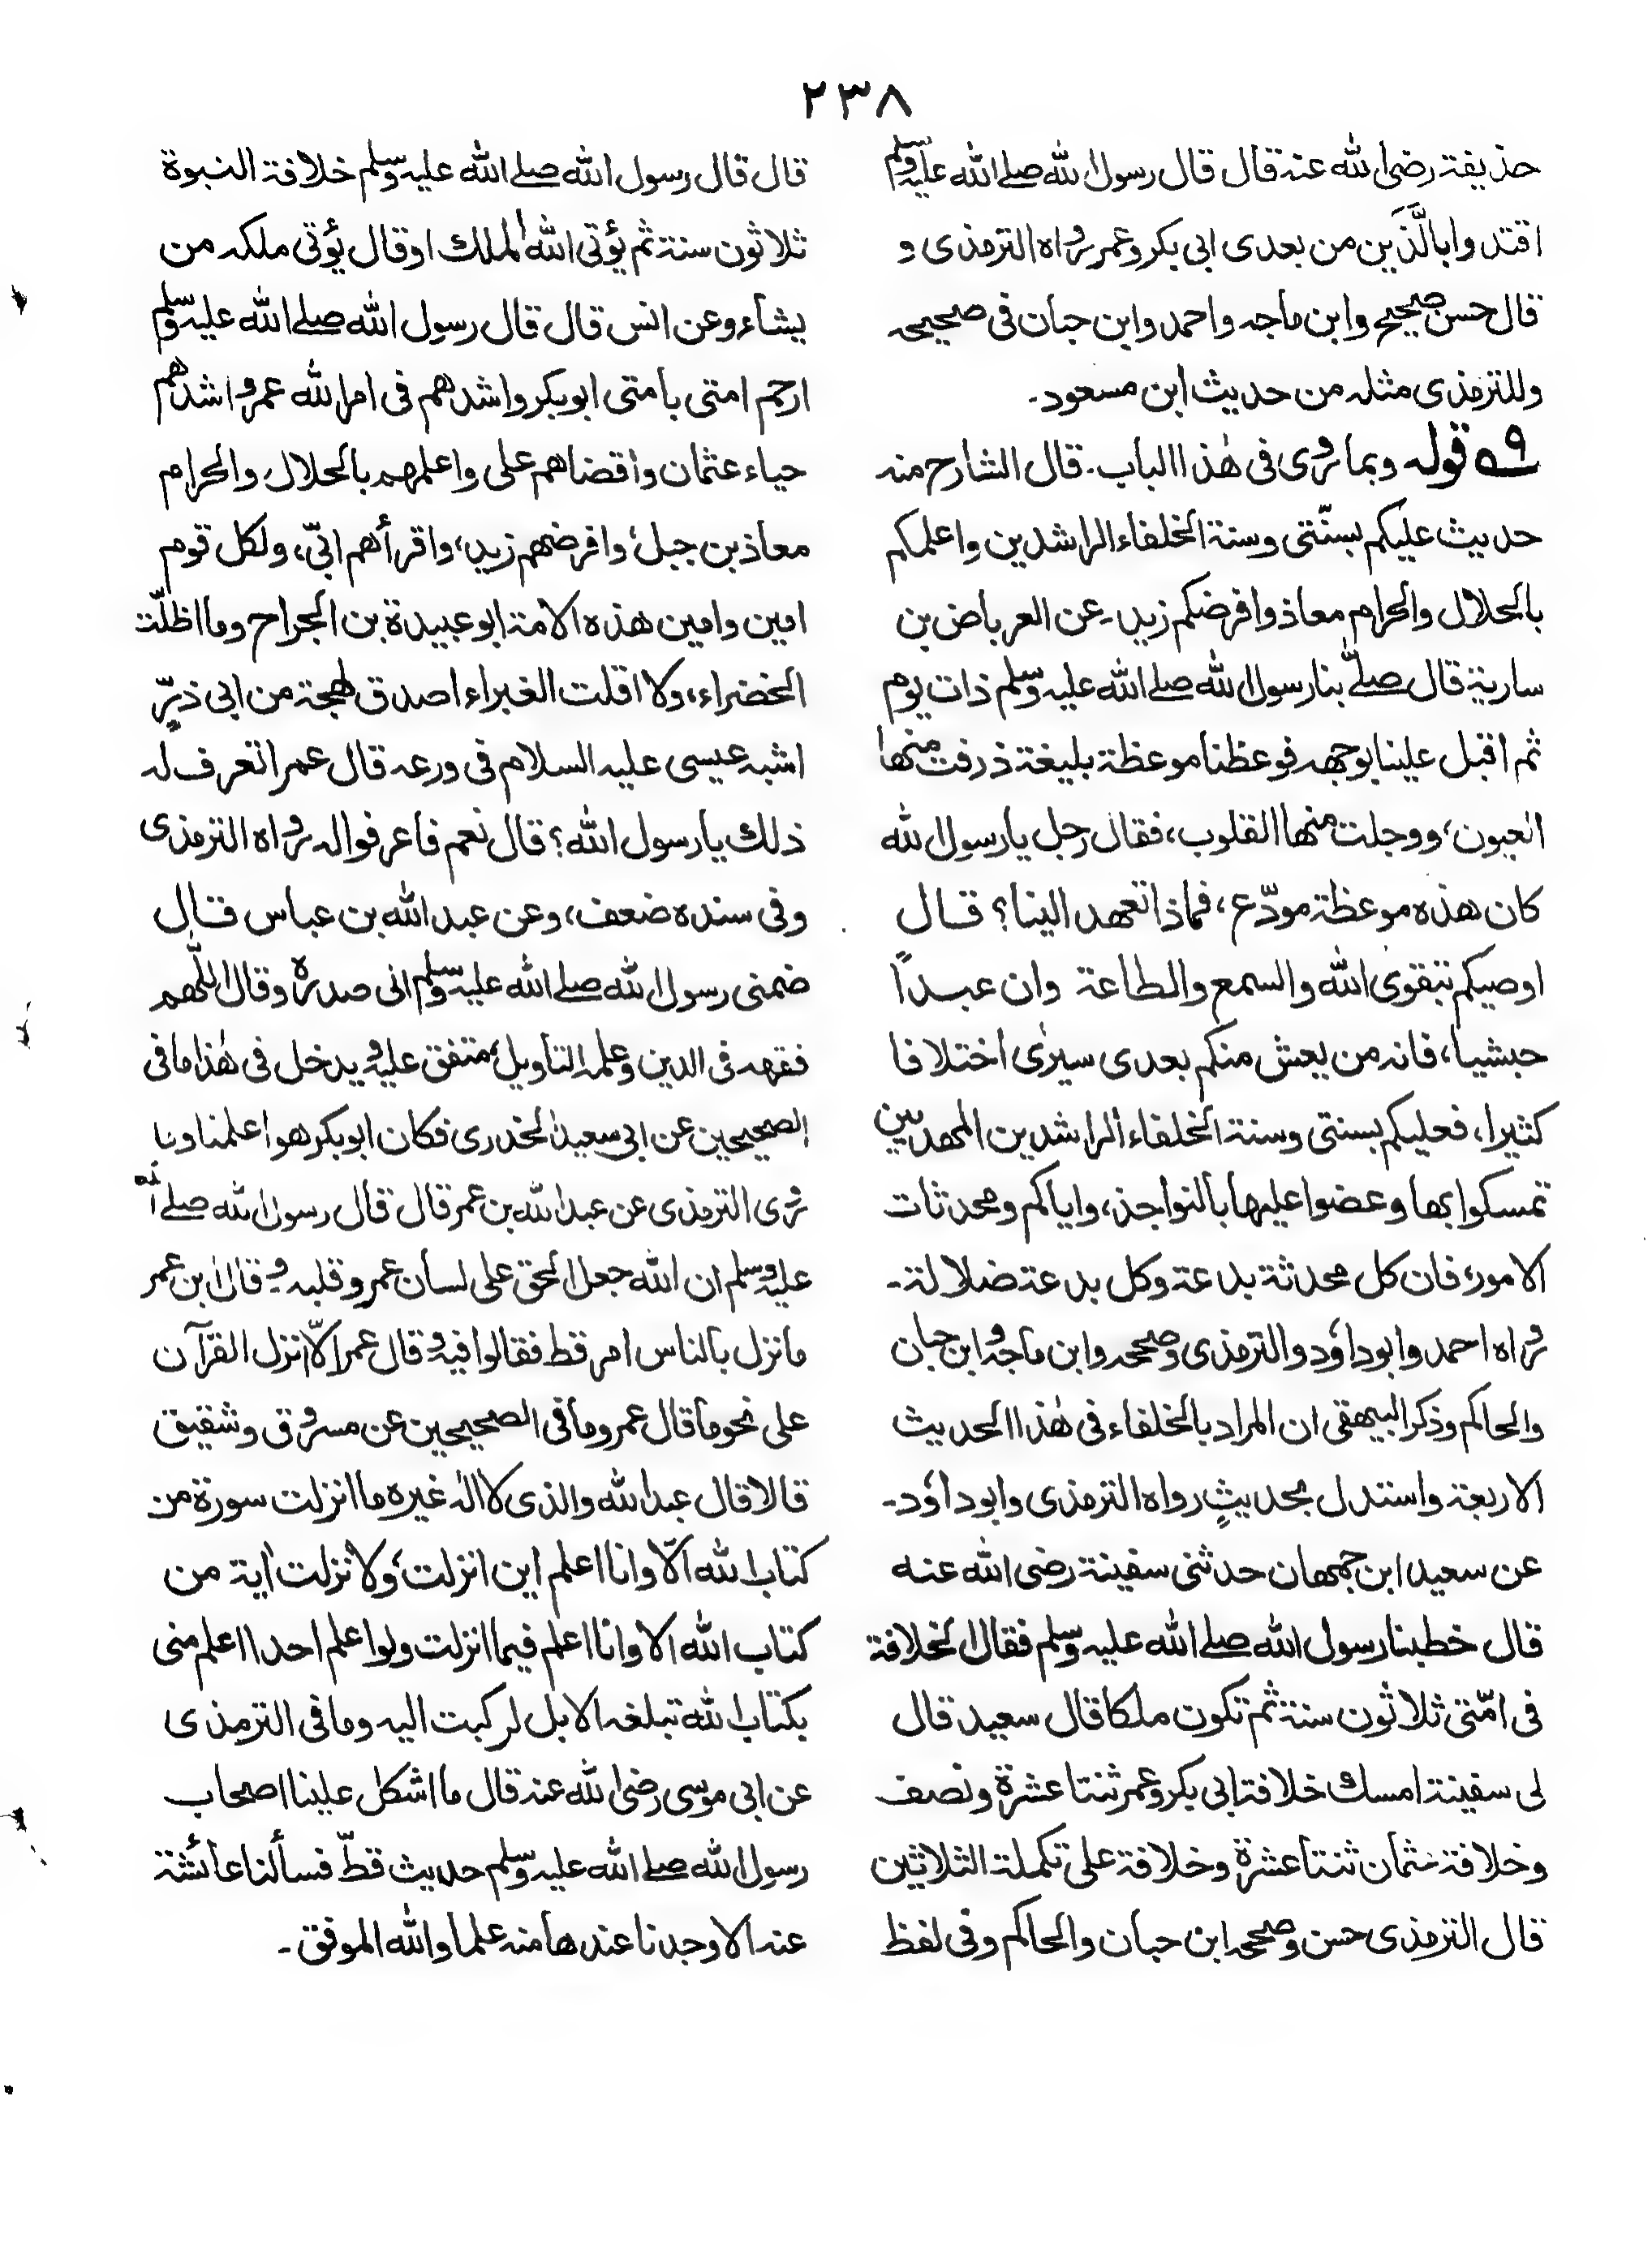 ٢٣٨
حذيفة رضى الله عنه قال قال رسول الله صلے الله عليه وسلم
اقتدوا بالَّذَين من بعدى ابى بكر وعمر رواه الترمذى و
قال حسن صحيح وابن ماجه واحمد وابن حبان فى صحيحه
وللترمذى مثله من حديث ابن مسعود۔
٩ قوله وبما روى فى هٰذا الباب۔ قال الشارح منه
حديث عليكم بسنّتى وسنة الخلفاء الراشدين واعلمكم
بالحلال والحرام معاذ وافرضكم زيد۔ عن العرباض بن
سارية قال صلّٰے بنا رسول الله صلے الله عليه وسلم ذات يوم
ثم اقبل علينا بوجهه فوعظنا موعظة بليغة ذرفت منها
العيون، ووجلت منها القلوب، فقال رجل يا رسول الله
كان هذه موعظة مودّع، فماذا تعهد الينا؟ قال
اوصيكم بتقوى الله والسمع والطاعة وان عبداً
حبشيا، فانه من يعش منكم بعدى سيرىٰ اختلافا
كثيرا، فعليكم بسنتى وسنة الخلفاء الراشدين المهديين
تمسكوا بها وعضوا عليها بالنواجذ، واياكم ومحدثات
الامور، فان كل محدثة بدعة وكل بدعة ضلالة۔
رواه احمد وابوداؤد والترمذى وصححه وابن ماجه وابن حبان
والحاكم وذكر البيهقى ان المراد بالخلفاء فى هٰذا الحديث
الاربعة واستدل بحديثٍ رواه الترمذى وابوداؤد۔
عن سعيد ابن جمهان حدثنى سفينة رضى الله عنه
قال خطبنا رسول الله صلے الله عليه وسلم فقال الخلافة
فى امّتى ثلاثون سنة ثم تكون ملكا قال سعيد قال
لى سفينة امسك خلافة ابى بكر وعمر ثنتا عشرة ونصف
وخلافة عثمان ثنتا عشرة وخلافة على تكملة الثلاثين
قال الترمذى حسن وصححه ابن حبان والحاكم وفى لفظ
قال قال رسول الله صلے الله عليه وسلم خلافة النبوة
ثلاثون سنة ثم يؤتى الله الملك اوقال يؤتى ملكه من
يشاء وعن انس قال قال رسول الله صلے الله عليه وسلم
ارحم امتى بامتى ابوبكر واشدهم فى امر الله عمر واشدهم
حياء عثمان واقضاهم على واعلمهم بالحلال والحرام
معاذ بن جبل، وافرضهم زيد، واقرأهم ابىّ، ولكل قوم
امين وامين هذه الامة ابوعبيدة بن الجراح وما اظلّت
الخضراء، ولا اقلت الغبراء اصدق لهجة من ابى ذرٍّ
اشبه عيسى عليه السلام فى ورعه قال عمر اتعرف له
ذلك يا رسول الله؟ قال نعم فاعرفوا له رواه الترمذى
وفى سنده ضعف، وعن عبد الله بن عباس قال
ضمنى رسول الله صلے الله عليه وسلم الى صدره وقال اللّٰهم
فقهه فى الدين وعلمه التاويل متفق عليه ويدخل فى هٰذا ما فى
الصحيحين عن ابى سعيد الخدرى فكان ابوبكر هو اعلمنا وبنا
روى الترمذى عن عبد الله بن عمر قال قال رسول الله صلے الله
عليه وسلم ان الله جعل الحق على لسان عمر وقلبه۔ وقال ابن عمر
ما نزل بالناس امر قط فقالوا فيه وقال عمر الّا نزل القرآن
على نحو ما قال عمر وما فى الصحيحين عن مسروق وشقيق
قالا قال عبد الله والذى لا الٰه غيره ما انزلت سورة من
كتاب الله الّا وانا اعلم اين انزلت، ولا نزلت اٰية من
كتاب الله الا وانا اعلم فيما انزلت ولو اعلم احدا اعلم منى
بكتاب الله تبلغه الابل لركبت اليه وما فى الترمذى
عن ابى موسى رضى الله عنه قال ما اشكل علينا اصحاب
رسول الله صلے الله عليه وسلم حديث قطّ فسألنا عائشة
عنه الا وجدنا عندها منه علما والله الموفق۔